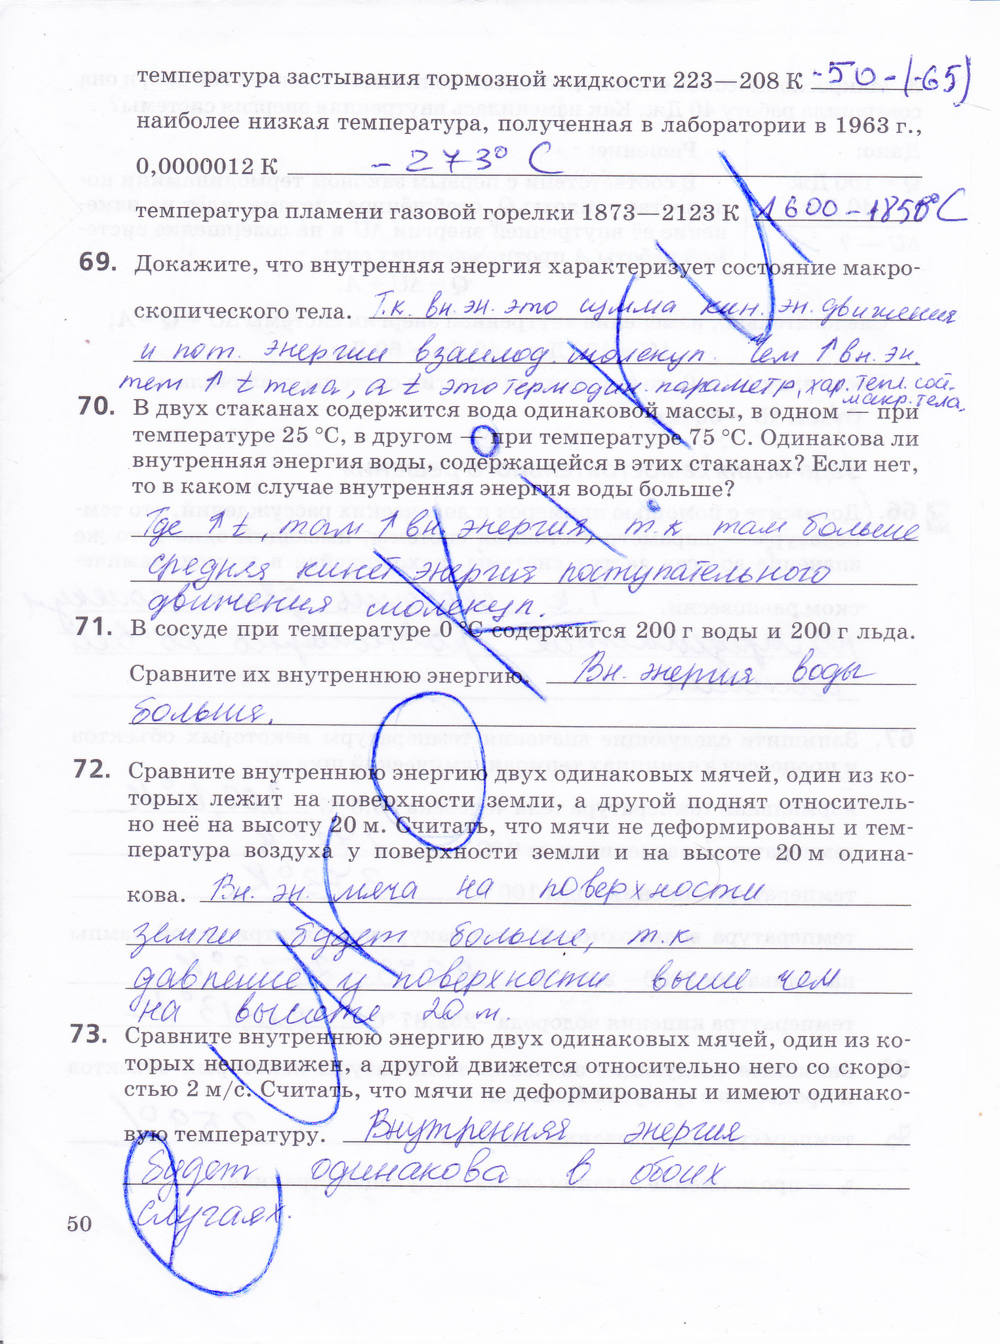 температура застывания тормозной жидкости 223—208 К -50-(-65)
наиболее низкая температура, полученная в лаборатории в 1963 г.,
0,0000012 К - 273° С
температура пламени газовой горелки 1873—2123 К 1600-1850°С
69. Докажите, что внутренняя энергия характеризует состояние макро-
скопического тела. Т.к. вн. эн. это сумма кин. эн. движения
и пот. энергии взаимод. молекул. Чем ↑ вн. эн.
тем ↑ t тела, а t это термодин. параметр, хар. тепл. сост.
макр. тела.
70. В двух стаканах содержится вода одинаковой массы, в одном — при
температуре 25 °С, в другом — при температуре 75 °С. Одинакова ли
внутренняя энергия воды, содержащейся в этих стаканах? Если нет,
то в каком случае внутренняя энергия воды больше?
Где ↑ t, там ↑ вн. энергия, т.к там больше
средняя кинет энергия поступательного
движения молекул.
71. В сосуде при температуре 0 °С содержится 200 г воды и 200 г льда.
Сравните их внутреннюю энергию. Вн. энергия воды
больше.
72. Сравните внутреннюю энергию двух одинаковых мячей, один из ко-
торых лежит на поверхности земли, а другой поднят относитель-
но неё на высоту 20 м. Считать, что мячи не деформированы и тем-
пература воздуха у поверхности земли и на высоте 20 м одина-
кова. Вн. эн. мяча на поверхности
земли будет больше, т.к
давление у поверхности выше чем
на высоте 20 м.
73. Сравните внутреннюю энергию двух одинаковых мячей, один из ко-
торых неподвижен, а другой движется относительно него со скоро-
стью 2 м/с. Считать, что мячи не деформированы и имеют одинако-
вую температуру. Внутренняя энергия
будет одинакова в обоих
случаях.
50